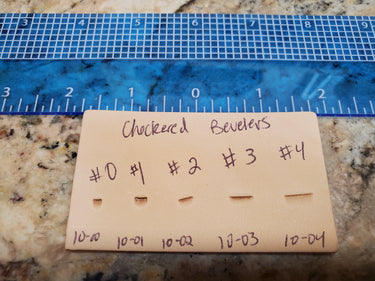 3 4 5 6 7 8
3 2 1 0 1 2
Checkered Bevelers
#0 #1 #2 #3 #4
10-00 10-01 10-02 10-03 10-04